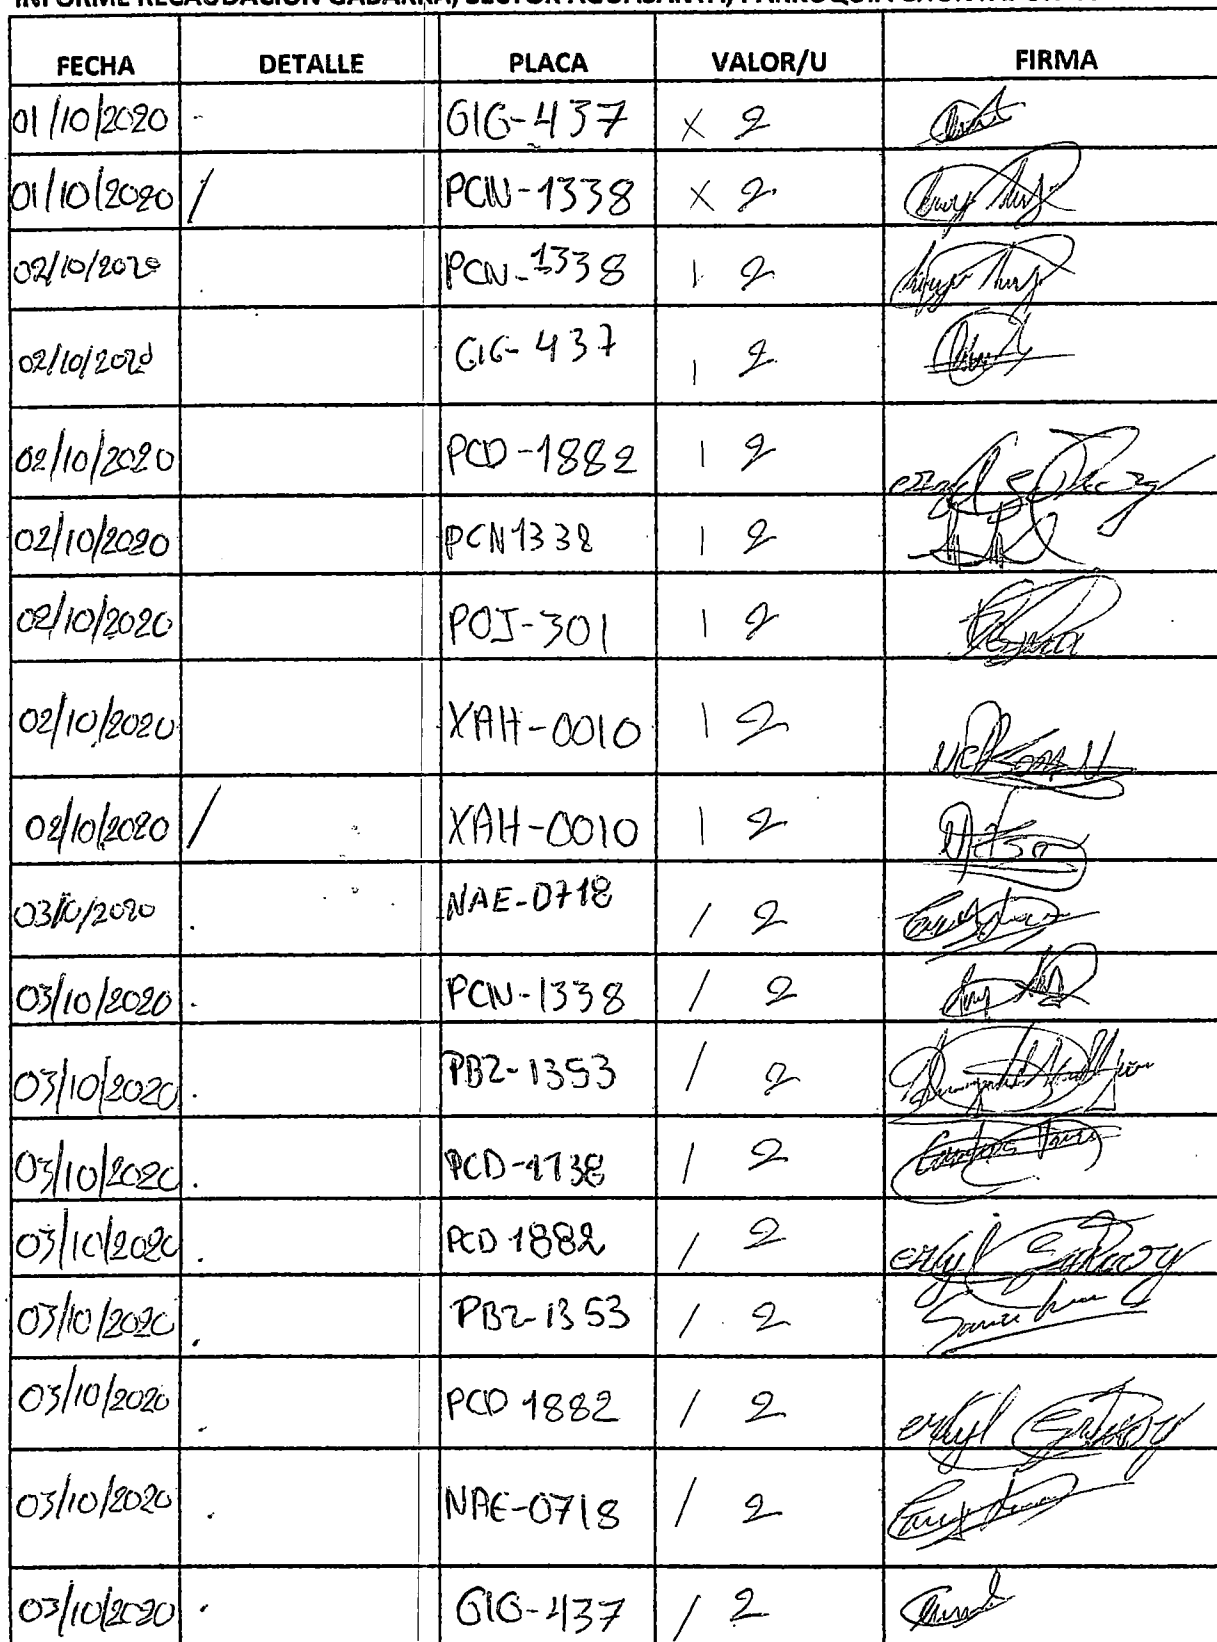 FECHA DETALLE PLACA VALOR/U FIRMA
01/10/2020 GIG-437 x 2
01/10/2020 / PCN-1338 x 2
02/10/2020 PCN-1338 1 2
02/10/2020 GIG-437 1 2
02/10/2020 PCD-1882 1 2
02/10/2020 PCN1338 1 2
02/10/2020 POJ-301 1 2
02/10/2020 XAH-0010 1 2
02/10/2020 / XAH-0010 1 2
03/10/2020 . NAE-0718 / 2
03/10/2020 . PCN-1338 / 2
03/10/2020 . PBZ-1353 / 2
03/10/2020 . PCD-1738 / 2
03/10/2020 . PCD 1882 / 2
03/10/2020 . PBZ-1353 / 2
03/10/2020 . PCD 1882 / 2
03/10/2020 . NAE-0718 / 2
03/10/2020 . GIG-437 / 2